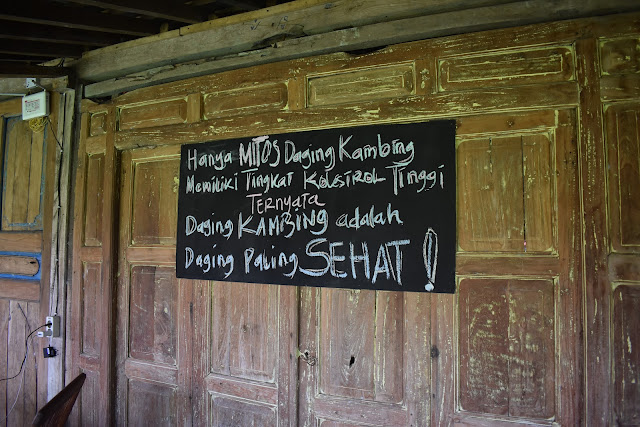 Hanya MITOS Daging Kambing
Memiliki Tingkat Kolestrol Tinggi
TERNYATA
Daging KAMBING adalah
Daging Paling SEHAT!